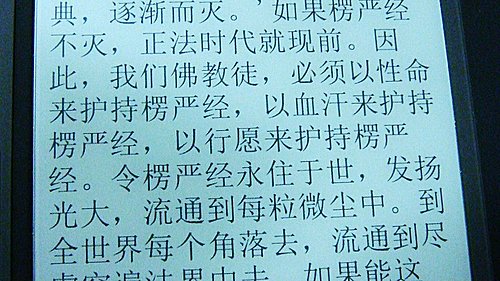 典，逐渐而灭。’如果楞严经
不灭，正法时代就现前。因
此，我们佛教徒，必须以性命
来护持楞严经，以血汗来护持
楞严经，以行愿来护持楞严
经。令楞严经永住于世，发扬
光大，流通到每粒微尘中。到
全世界每个角落去，流通到尽
虚空遍法界中去。如果能这